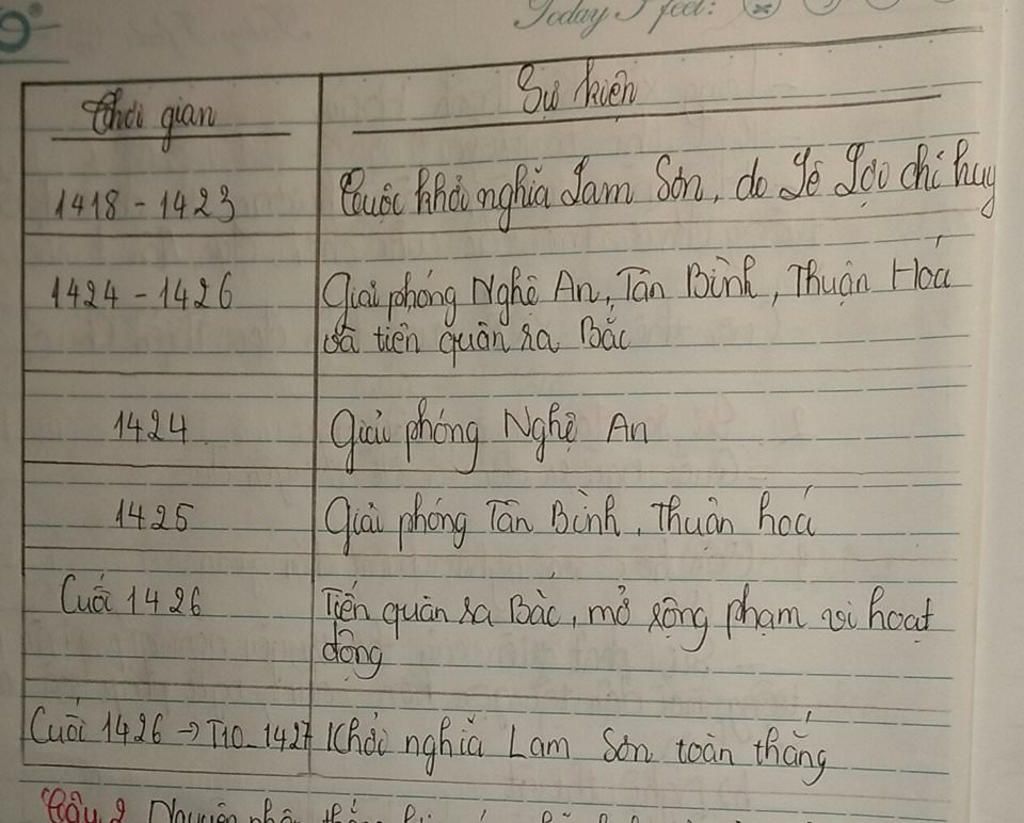 Today I feel:
Thời gian
Sự kiện
1418 - 1423
Cuộc khởi nghĩa Lam Sơn, do Lê Lợi chỉ huy
1424 - 1426
Giải phóng Nghệ An, Tân Bình, Thuận Hóa
và tiến quân ra Bắc
1424
Giải phóng Nghệ An
1425
Giải phóng Tân Bình, Thuận hoá
Cuối 1426
Tiến quân ra Bắc, mở rộng phạm vi hoạt
động
Cuối 1426 → T10_1427
Khởi nghĩa Lam Sơn toàn thắng
Câu 2 Nguyên nhân